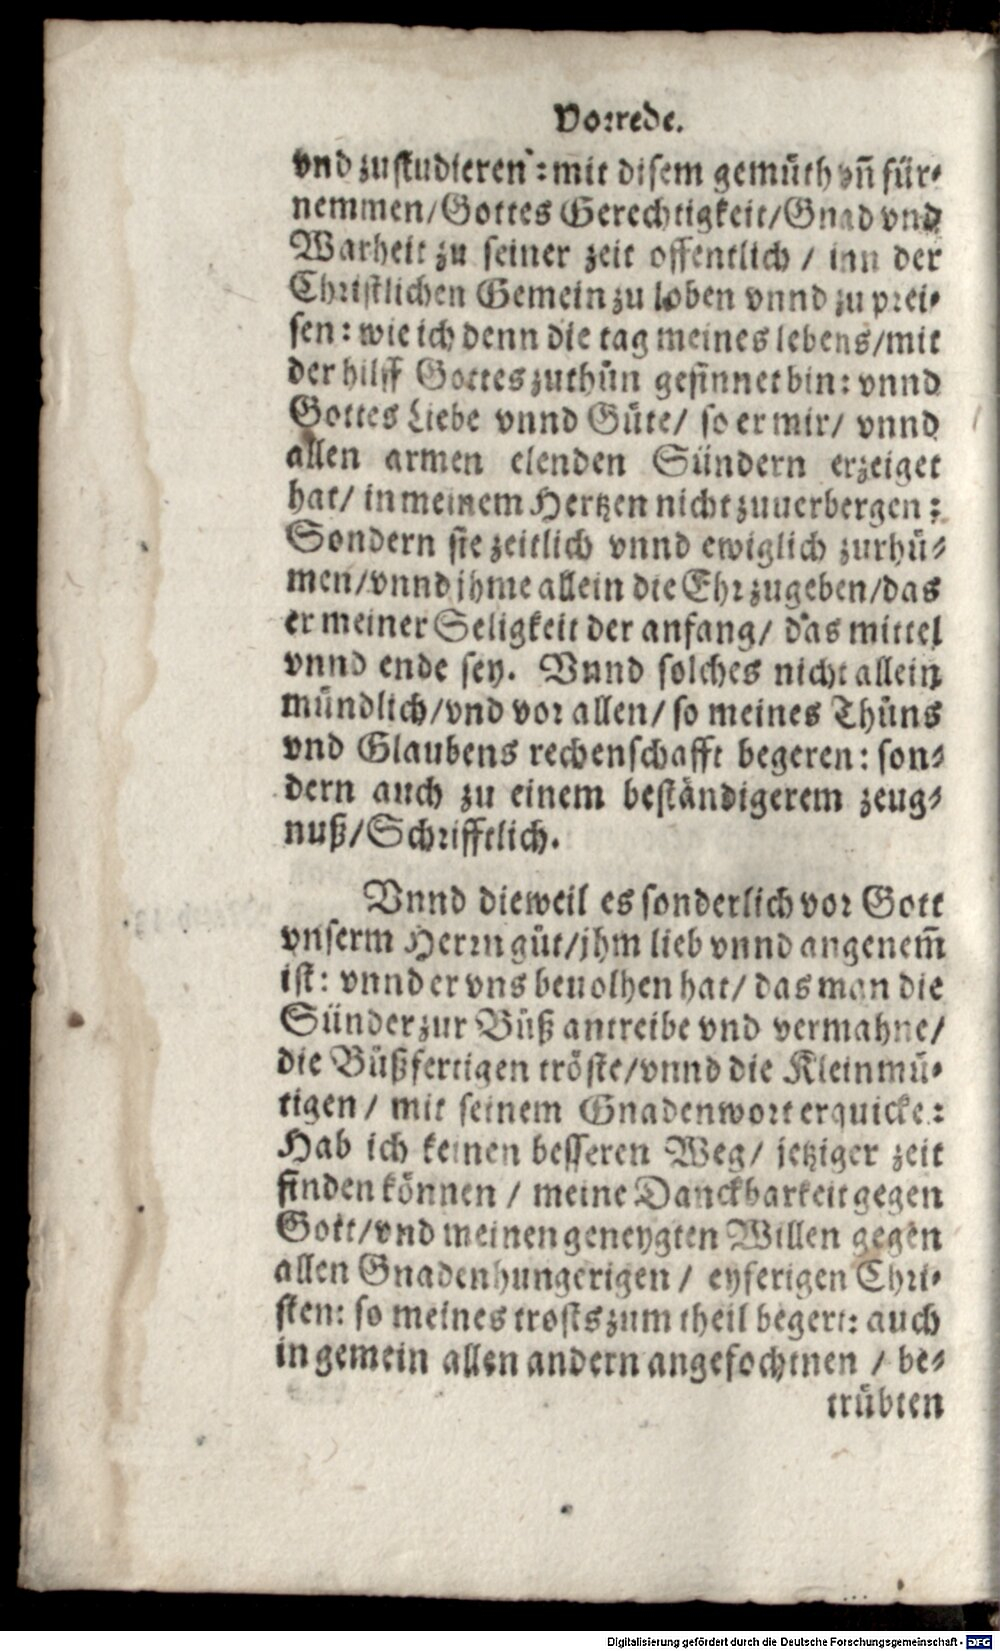 Vorrede.
vnd zustudieren: mit disem gemüth vñ für-
nemmen/Gottes Gerechtigkeit/Gnad vnd
Warheit zu seiner zeit offentlich / inn der
Christlichen Gemein zu loben vnnd zu prei-
sen: wie ich denn die tag meines lebens/mit
der hilff Gottes zuthůn gesinnet bin: vnnd
Gottes Liebe vnnd Güte/ so er mir/ vnnd
allen armen elenden Sündern erzeiget
hat/ in meinem Hertzen nicht zuuerbergen:
Sondern sie zeitlich vnnd ewiglich zurhü-
men/vnnd jhme allein die Ehr zugeben/das
er meiner Seligkeit der anfang/ das mittel
vnnd ende sey. Vnnd solches nicht allein
mündlich/vnd vor allen/ so meines Thůns
vnd Glaubens rechenschafft begeren: son-
dern auch zu einem beständigerem zeug-
nuß/Schrifftlich.
Vnnd dieweil es sonderlich vor Gott
vnserm Herrn gůt/jhm lieb vnnd angenem̃
ist: vnnd er vns beuolhen hat/ das man die
Sünder zur Bůß antreibe vnd vermahne/
die Bůßfertigen tröste/vnnd die Kleinmü-
tigen / mit seinem Gnadenwort erquicke:
Hab ich keinen besseren Weg/ jetziger zeit
finden können / meine Danckbarkeit gegen
Gott/vnd meinen geneygten Willen gegen
allen Gnadenhungerigen / eyferigen Chri-
sten: so meines trosts zum theil begert: auch
in gemein allen andern angefochtnen / be-
trübten
Digitalisierung gefördert durch die Deutsche Forschungsgemeinschaft - DFG